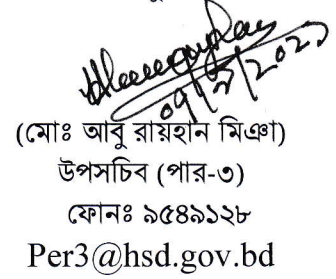 (মোঃ আবু রায়হান মিঞা)
উপসচিব (পার-৩)
ফোনঃ ৯৫৪৯১২৮
Per3@hsd.gov.bd